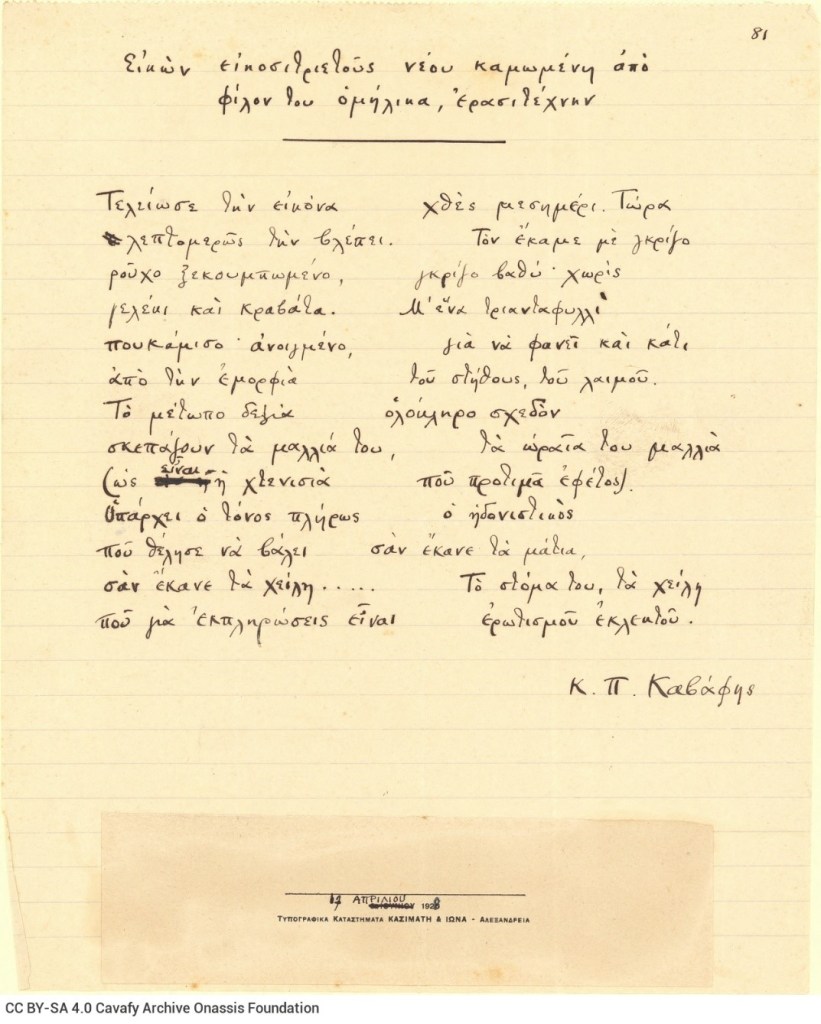 81
Εἰκὼν εἰκοσιτριετοῦς νέου καμωμένη ἀπὸ
φίλον του ὁμήλικα, ἐρασιτέχνην
Τελείωσε τὴν εἰκόνα χθὲς μεσημέρι. Τώρα
λεπτομερῶς τὴν βλέπει. Τὸν ἔκαμε μὲ γκρίζο
ροῦχο ξεκουμπωμένο, γκρίζο βαθύ· χωρὶς
γελέκι καὶ κραβάτα. Μ' ἕνα τριανταφυλλὶ
πουκάμισο· ἀνοιγμένο, γιὰ νὰ φανεῖ καὶ κάτι
ἀπὸ τὴν ἐμορφιὰ τοῦ στήθους, τοῦ λαιμοῦ.
Τὸ μέτωπο δεξιὰ ὁλόκληρο σχεδὸν
σκεπάζουν τὰ μαλλιά του, τὰ ὡραῖα του μαλλιὰ
(ὡς εἶναι ἡ χτενισιὰ ποῦ προτιμᾶ ἐφέτος).
Ὑπάρχει ὁ τόνος πλήρως ὁ ἡδονιστικὸς
ποῦ θέλησε νὰ βάλει σὰν ἔκανε τὰ μάτια,
σὰν ἔκανε τὰ χείλη..... Τὸ στόμα του, τὰ χείλη
ποῦ γιὰ ἐκπληρώσεις εἶναι ἐρωτισμοῦ ἐκλεκτοῦ.
Κ. Π. Καβάφης
ΑΠΡΙΛΙΟΥ 1928
ΤΥΠΟΓΡΑΦΙΚΑ ΚΑΤΑΣΤΗΜΑΤΑ ΚΑΣΙΜΑΤΗ & ΙΩΝΑ - ΑΛΕΞΑΝΔΡΕΙΑ
CC BY-SA 4.0 Cavafy Archive Onassis Foundation